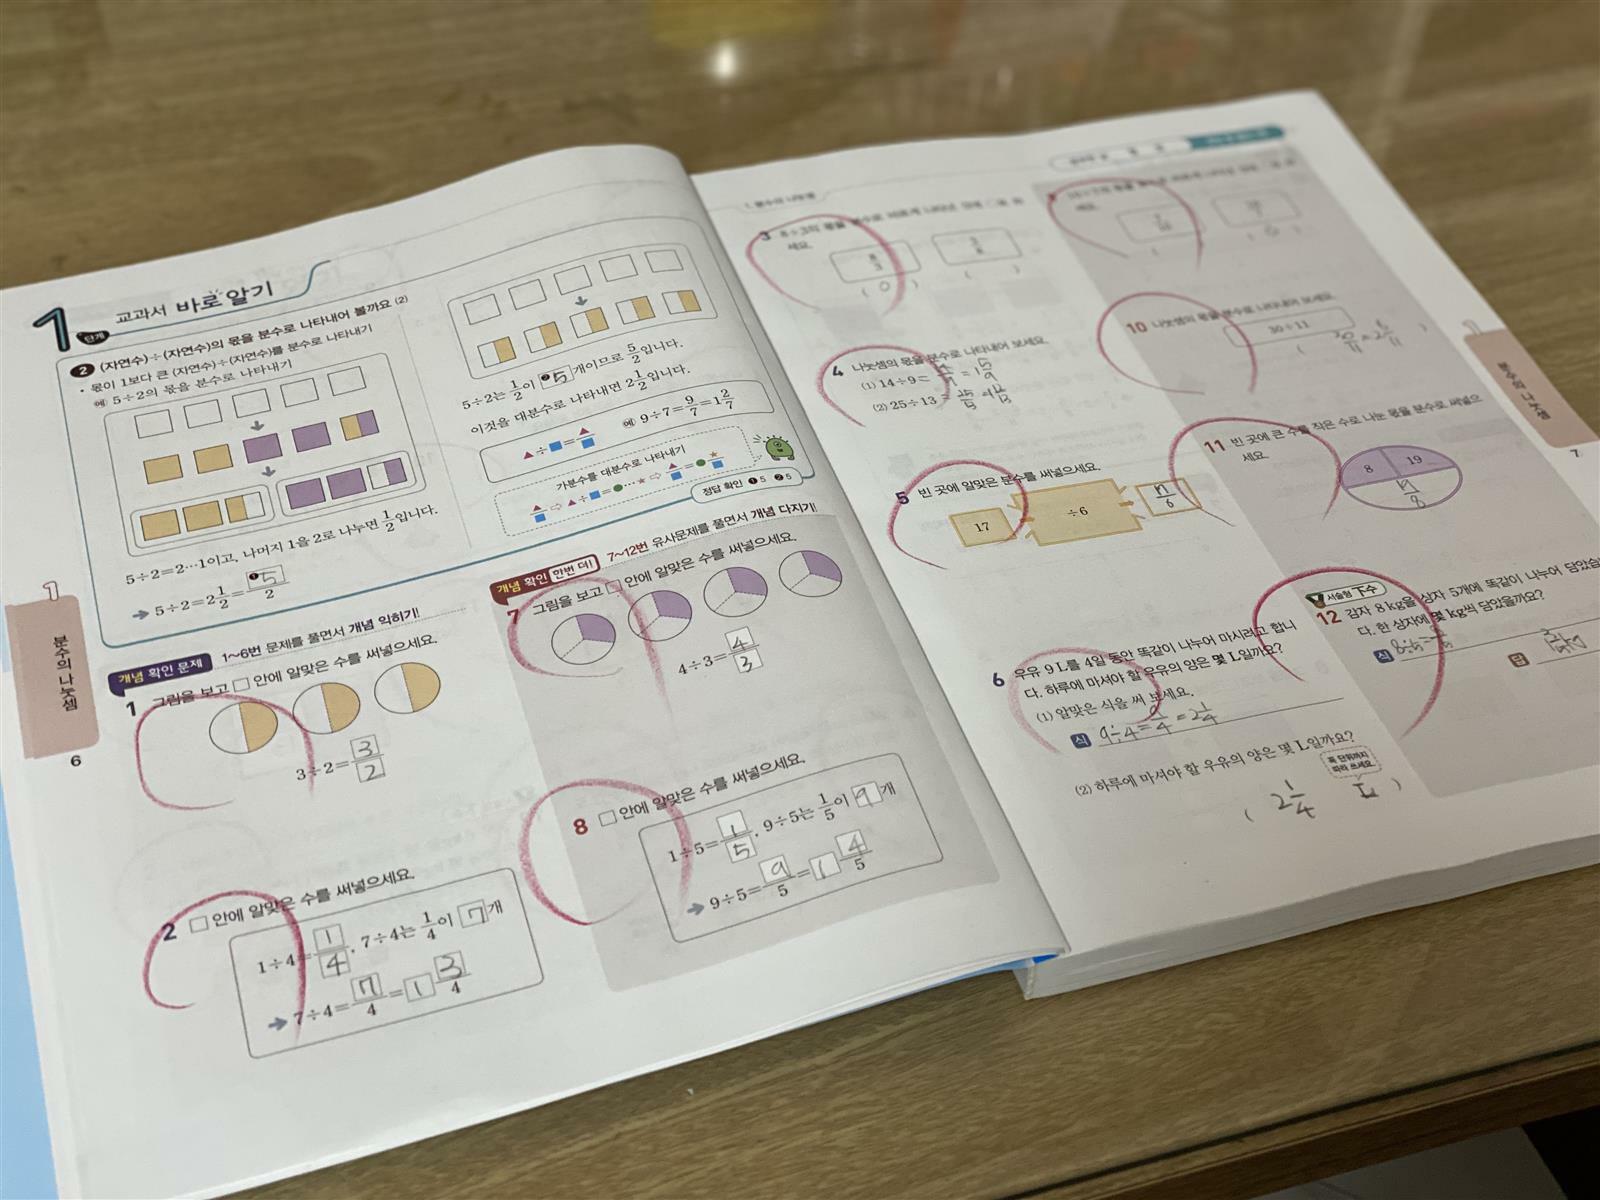 1단계 교과서 바로 알기
2 (자연수)÷(자연수)의 몫을 분수로 나타내어 볼까요 (2)
• 몫이 1보다 큰 (자연수)÷(자연수)를 분수로 나타내기
예 5÷2의 몫을 분수로 나타내기
5÷2=2…1이고, 나머지 1을 2로 나누면 1/2입니다.
➔ 5÷2=2 1/2=❶5/2
5÷2는 1/2이 ❷5개이므로 5/2입니다.
이것을 대분수로 나타내면 2 1/2입니다.
▲÷■=▲/■ 예 9÷7=9/7=1 2/7
가분수를 대분수로 나타내기
▲/■ ⇨ ▲÷■=●…★ ⇨ ▲/■=● ★/■
정답 확인 ❶ 5 ❷ 5
개념 확인 문제 1~6번 문제를 풀면서 개념 익히기!
1 그림을 보고 □ 안에 알맞은 수를 써넣으세요.
3÷2=3/2
2 □ 안에 알맞은 수를 써넣으세요.
1÷4=1/4, 7÷4는 1/4이 7개
➔ 7÷4=7/4=1 3/4
개념 확인 한번 더! 7~12번 유사문제를 풀면서 개념 다지기!
7 그림을 보고 □ 안에 알맞은 수를 써넣으세요.
4÷3=4/3
8 □ 안에 알맞은 수를 써넣으세요.
1÷5=1/5, 9÷5는 1/5이 9개
➔ 9÷5=9/5=1 4/5
1
분수의 나눗셈
6
1. 분수의 나눗셈
3 8÷3의 몫을 분수로 바르게 나타낸 것에 ○표 하
세요.
8/3 3/8
( O ) ( )
4 나눗셈의 몫을 분수로 나타내어 보세요.
(1) 14÷9=14/9=1 5/9
(2) 25÷13=25/13=1 12/13
5 빈 곳에 알맞은 분수를 써넣으세요.
17 ÷6 17/6
6 우유 9 L를 4일 동안 똑같이 나누어 마시려고 합니
다. 하루에 마셔야 할 우유의 양은 몇 L일까요?
(1) 알맞은 식을 써 보세요.
식 9÷4=9/4=2 1/4
(2) 하루에 마셔야 할 우유의 양은 몇 L일까요?
꼭 단위까지
따라 쓰세요.
( 2 1/4 L )
세요.
10 나눗셈의 몫을 분수로 나타내어 보세요.
30÷11
( 30/11=2 8/11 )
11 빈 곳에 큰 수를 작은 수로 나눈 몫을 분수로 써넣으
세요.
8 19
19/8
서술형 下수
12 감자 8 kg을 상자 5개에 똑같이 나누어 담았습
다. 한 상자에 몇 kg씩 담았을까요?
식 8÷5=
답
1
분수의 나눗셈
7